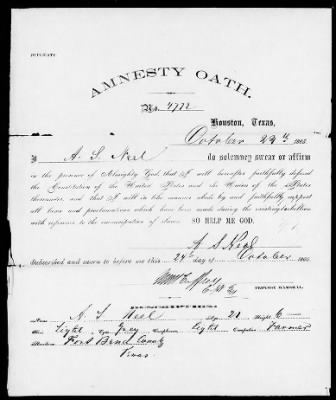 DUPLICATE
AMNESTY OATH.
No. 4772
Houston, Texas,
October 24th 1865
I A. S. Neel do solemnly swear or affirm
in the presence of Almighty God, that I will hereafter faithfully defend
the Constitution of the United States and the Union of the States
thereunder, and that I will in like manner abide by and faithfully support
all laws and proclamations which have been made during the existing rebellion
with reference to the emancipation of slaves SO HELP ME GOD.
A. S. Neel
Subscribed and sworn to before me this
24th day of October 1865
PROVOST MARSHAL.
DESCRIPTION:
Name A. S. Neel Age 21 Height 6
Hair Light Eyes Grey Complexion Light Occupation Farmer
Residence Fort Bend County
Texas